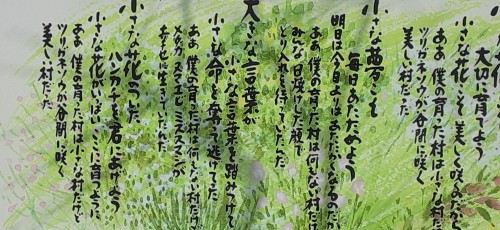 大切に育てよう
小さな花こそ美しく咲くのだから
ああ 僕の育った村は小さな村だけど
ツリガネソウが谷間に咲く
美しい村だった
小さな夢こそ
毎日あたためよう
明日は今日よりは
ああ 僕の育った村は何もない村だけ
みんな日焼した顔で
とり入れを待っていた
大きな言葉が
小さな言葉を踏みつけて
小さい命を奪う迄てた
ああ 僕の育った村は何もない村だけ
メダカ スズメ ミミズ
小さな花のした
ハンカチを君にあげよう
小さな花がいっぱいここに育つように
ああ 僕の育った村は小さな村だけど
ツリガネソウが谷間に咲く
美しい村だった